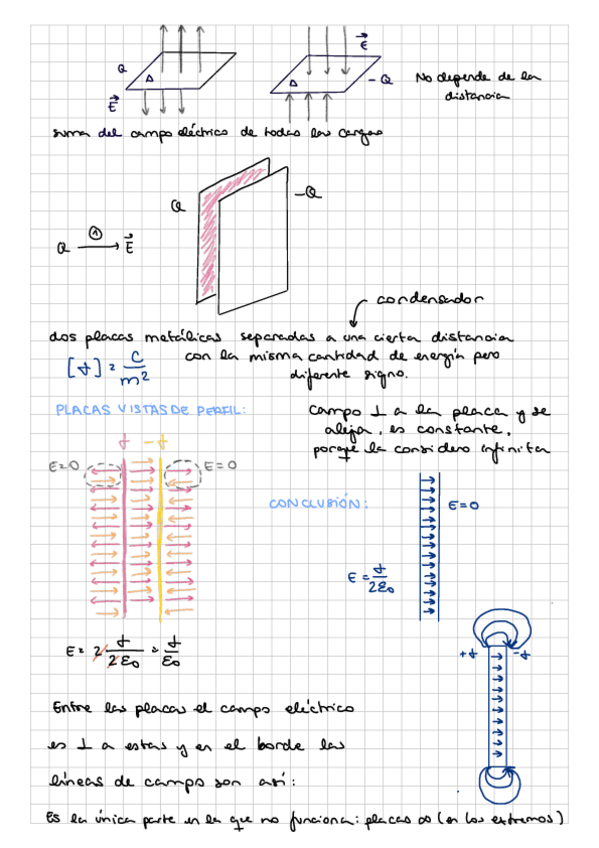 Q
E⃗
-Q
E⃗
No depende de la
distancia
suma del campo eléctrico de todas las cargas
Q
-Q
Q → E⃗
condensador
dos placas metálicas separadas a una cierta distancia
[σ] = C/m²
con la misma cantidad de energía pero
diferente signo.
PLACAS VISTAS DE PERFIL:
campo ⊥ a la placa y se
aleja, es constante,
porque la considero infinita
σ -σ
E=0
E=0
CONCLUSIÓN:
E=0
E = σ/2ε₀
E = 2 σ/2ε₀ = σ/ε₀
+σ -σ
Entre las placas el campo eléctrico
es ⊥ a estas y en el borde las
líneas de campo son así:
Es la única parte en la que no funciona: placas ∞ (en los extremos)